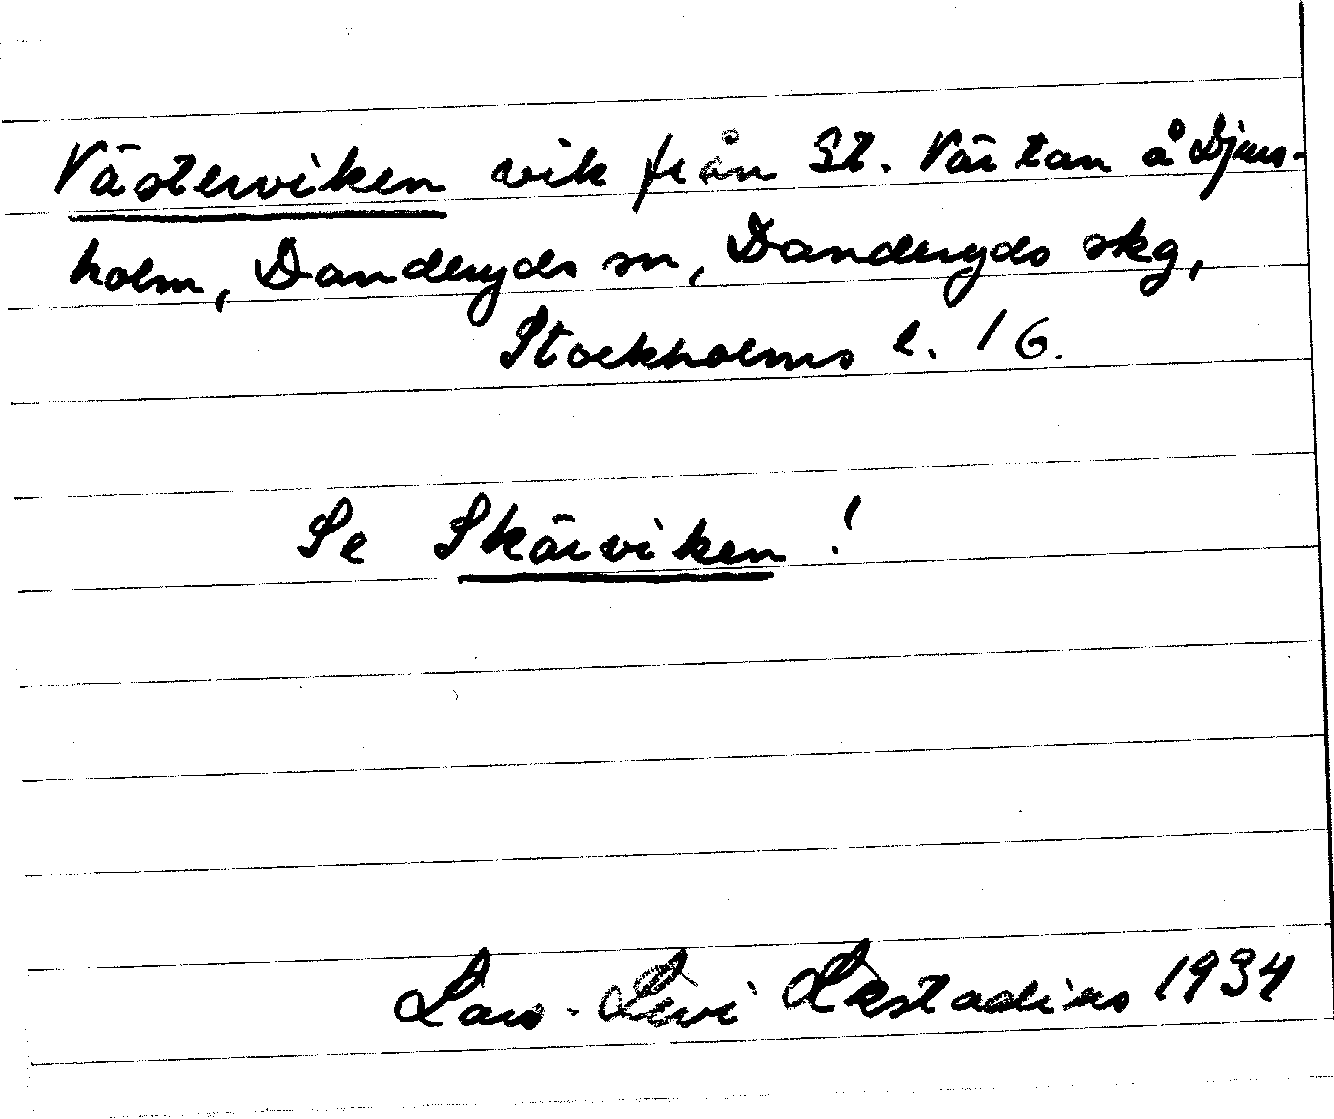 Västerviken vik från St. Värtan å Djurs-
holm, Danderyds sn, Danderyds skg,
Stockholms l. 16.
Se Skärviken!
Lars-Levi Læstadius 1934